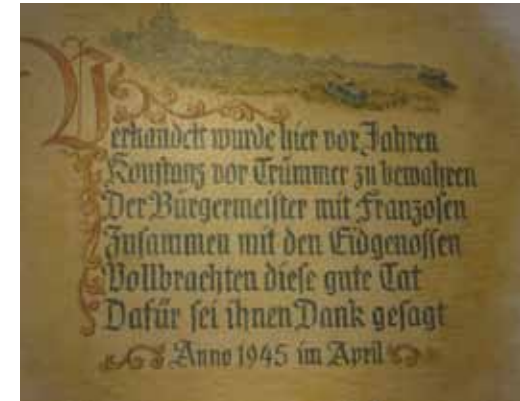 Verhandelt wurde hier vor Jahren
Konstanz vor Trümmer zu bewahren
Der Bürgermeister mit Franzosen
Zusammen mit den Eidgenossen
Vollbrachten diese gute Tat
Dafür sei ihnen Dank gesagt
Anno 1945 im April